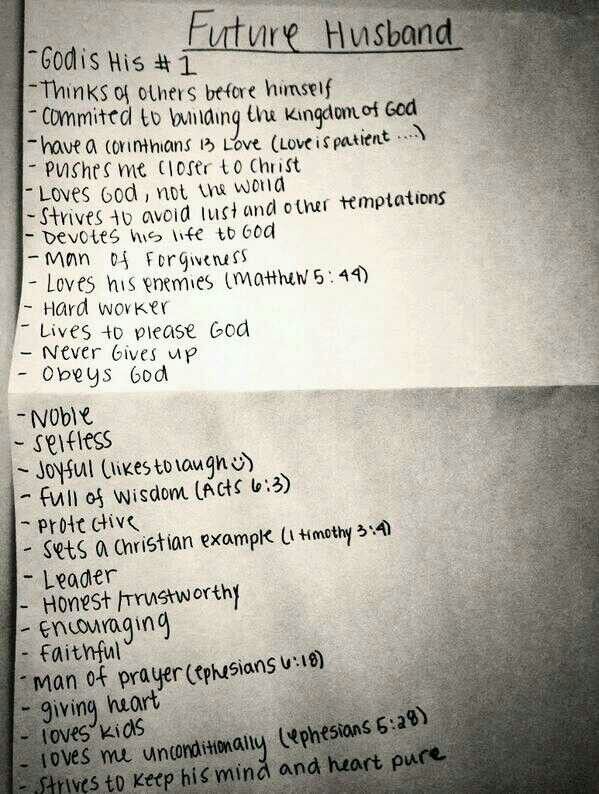 Future Husband
- God is His #1
- Thinks of others before himself
- committed to building the kingdom of God
- have a corinthians 13 Love (Love is patient ....)
- pushes me closer to Christ
- Loves God, not the world
- Strives to avoid lust and other temptations
- Devotes his life to God
- Man of Forgiveness
- Loves his enemies (Matthew 5:44)
- Hard worker
- Lives to please God
- Never Gives up
- Obeys God
- Noble
- Selfless
- Joyful (likes to laugh☺)
- Full of Wisdom (Acts 6:3)
- Protective
- Sets a Christian example (1 timothy 3:4)
- Leader
- Honest/Trustworthy
- Encouraging
- Faithful
- Man of prayer (ephesians 6:18)
- giving heart
- loves kids
- loves me unconditionally (ephesians 5:28)
- Strives to keep his mind and heart pure